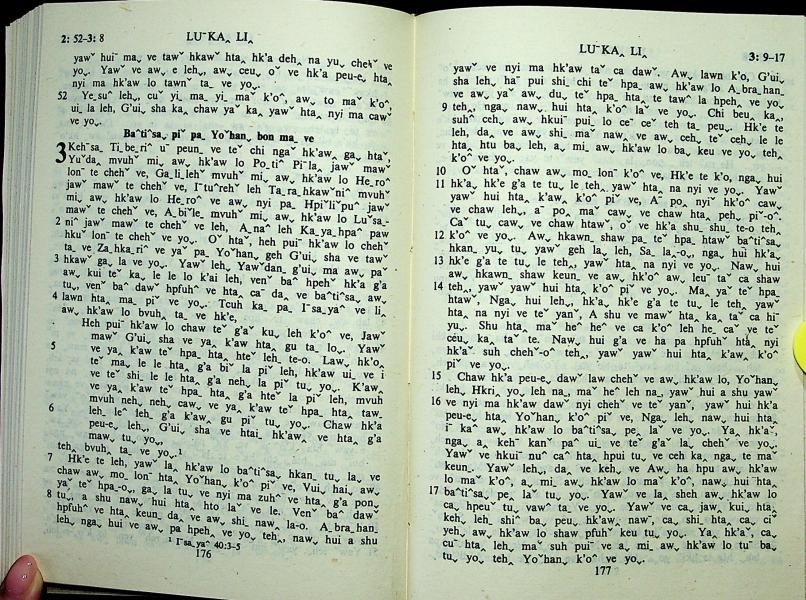 2: 52–3: 8
LUˉ KAꞈ LIꞈ
yawˇ huiˉ maˬ ve tawˇ hkawˬ htaˬ hk'a dehꞈ na yuˬ chehˇ ve
yoˬ. Yawˇ ve awˬ e lehˬ, awˬ ceuˬ oˇ ve hk'a peu-eˬ htaˬ
nyi ma hk'aw lo tawnˇ taˍ ve yoˬ.
52 Yeˍ suˆ lehˬ, cuˇ yiˍ maˍ yiˍ maˇ k'oˆ, awˬ to maˇ k'oˆ,
ui la lehˬ G'uiˬ sha kaˬ chaw yaˇ kaˬ yawˇ htaˬ nyi ma cawˇ
ve yoˬ.
Baˆ tiˆ saˬ piˇ paˍ Yoˇ hanˬ bon maˬ ve
3 Kehˉ saˍ Tiˍ beˍ riˆ uˉ peunˍ ve teˇ chi ngaˇ hk'awˬ gaˬ htaˇ,
Yuˇ daˬ mvuhˇ miˬ awˬ hk'aw lo Poˍ tiˆ Piˇ laˬ jawˇ maw
lonˉ te chehˇ ve, Gaˍ liˍ lehˇ mvuhˇ miˬ awˬ hk'aw lo Heˍ roˆ
jawˇ maw te chehˇ ve, Iˉ tuˆ rehˇ leh Taˍ raˍ hkawˇ niˆ mvuhˇ
miˬ awˬ hk'aw lo Heˍ roˆ ve awˬ nyi pa Hpiˇ liˇ puˆ jawˇ
maw te chehˇ ve, Aˍ biˇ leˍ mvuhˇ miˬ awˬ hk'aw lo Luˆ saˍ-
2 niˆ jawˇ maw te chehˇ ve leh, Aˍ naˆ leh Kaˍ yaˍ hpaˆ paw
hkuˇ lonˉ te chehˇ ve yoˬ. Oˇ htaˇ, heh puiˉ hk'aw lo chehˇ
taˍ ve Zaˍ hkaˍ riˆ ve yaˇ pa Yoˇ hanˬ geh G'uiˬ sha ve tawˇ
3 hkawˬ gaˬ la ve yoˬ. Yawˇ leh, Yawˇ danˍ g'uiˬ ma awˬ paˇ
awˬ kui teˇ kaˬ le le lo k'ai leh, venˇ baˆ hpehˇ hk'a g'a
tuˬ, venˇ baˆ dawˬ hpfuhˇ ve htaˬ caˉ daˬ ve baˆ tiˆ saˬ awˬ
4 lawn htaˬ maˍ piˇ ve yoˬ. Tcuh kaˍ paˬ Iˉ saˍ yaˆ ve liˬ
awˬ hk'aw lo bvuhˬ taˍ ve hk'e,
Heh puiˉ hk'aw lo chaw teˇ g'aˇ kuˬ leh k'oˆ ve, Jawˇ
mawˇ G'uiˬ sha ve ya k'aw htaˬ gu taˍ loˬ. Yawˇ
5 ve yaˬ k'awˇ teˇ hpaˍ htaˬ hteˇ lehˬ te-o. Lawˬ hk'oˬ
teˇ maˬ le le htaˬ g'a biˇ la piˇ leh, hk'aw ui ve i
ve teˇ shiˬ le le htaˬ g'a neh la piˇ tuˬ yoˬ. K'awˬ
ve yaˬ k'awˇ teˇ hpaˍ htaˬ g'a hteˇ la piˇ leh, mvuh
mvuh nehˬ nehˬ cawˬ ve yaˬ k'awˇ teˇ hpaˍ htaˬ tawˍ
6 lehˉ leˆ lehˬ g'a k'awˬ gu piˇ tuˬ yoˬ. Chaw hk'a
peu-e lehˬ, G'uiˬ sha ve htaiˍ hk'awˬ ve htaˬ g'a
maw tuˬ yoˬ,
teh bvuhˬ taˍ ve yoˬ.¹
7 Hk'e te leh, yawˇ laˬ hk'aw lo baˆ tiˆ saˬ hkanˍ tuˬ laˬ ve
chaw awˬ moˍ lonˉ htaˬ Yoˇ hanˬ k'oˆ piˇ ve, Vuiˬ haiˬ awˬ
yaˇ teˇ hpaˍ-oˬ, gaˬ la tuˬ ve nyi ma zuhˆ ve htaˬ g'a ponˬ
8 tuˬ, a shu nawˬ hui htaˬ hto laˇ ve le. Venˇ baˆ dawˇ
hpfuhˆ ve htaˬ keunˬ daˬ ve awˬ shiˍ nawˬ la-o. Aˍ braˍ hanˍ
leh, nga hui ve awˬ pa hpehˬ ve yoˬ tehˬ, nawˬ hui a shu
¹ Iˉ saˍ yaˆ 40:3–5
176
LUˉ KAꞈ LIꞈ
3: 9–17
yawˇ ve nyi ma hk'aw taˇ ca dawˇ. Awˬ lawn k'o, G'uiˬ
sha lehˬ haˇ pui shiˍ chi teˇ hpaˬ awˬ hk'aw lo Aˍ braˍ hanˍ
ve awˬ yaˇ awˬ duˬ teˇ hpaˬ htaˬ te tawˇ la hpeh ve yoˬ
9 tehˬ, ngaˬ nawˬ hui htaˬ k'oˆ laˇ ve yoˬ. Chi beu kaˬ,
suhˆ cehˬ awˬ hkuiˉ puiˬ lo ceˉ ceˇ teh taˍ peuˬ. Hk'e te
leh, daˬ ve awˬ shiˍ maˇ nawˬ ve awˬ cehˬ teˇ cehˬ le le
htaˬ htu baˬ leh, aˬ miˬ awˬ hk'aw lo baˬ keu ve yoˬ tehˬ
k'oˆ ve yoˬ.
10 Oˇ htaˇ, chaw awˬ moˍ lonˉ k'oˆ ve, Hk'e te k'o, nga hui
11 hk'aˬ hk'e g'a te tuˬ le tehˬ yawˇ htaˬ na nyi ve yoˬ. Yawˇ
yawˇ hui htaˬ k'awˬ k'oˆ piˇ ve, Aˇ poˬ nyiˇ hk'oˇ cawˬ
ve chaw lehˬ, aˇ poˬ maˇ cawˬ ve chaw htaˬ pehˍ piˇ-oˆ.
Caˇ tuˬ cawˬ ve chaw htawˇ, oˇ ve hk'a shuˍ shuˍ te-o tehˬ
12 k'oˆ ve yoˬ. Awˬ hkawnˬ shaw pa teˇ hpaˍ htawˇ baˆ tiˆ saˬ
hkanˍ yuˬ tuˬ yawˇ geh la leh, Saˍ laˍ-oˬ, nga hui hk'aˬ
13 hk'e g'a te tuˬ le tehˬ, yawˇ htaˬ na nyi ve yoˬ. Nawˬ hui
awˬ hkawnˬ shaw keunˬ ve awˬ hk'oˆ awˬ leuˉ taˇ ca shaw
14 tehˬ, yawˇ yawˇ hui htaˬ k'oˆ piˇ ve yoˬ. Maˬ yaˇ teˇ hpaˍ
htawˇ, Nga hui lehˬ, hk'aˬ hk'e g'a te tuˬ le tehˬ yawˇ
htaˬ na nyi ve teˇ yanˇ, A shu ve maw htaˬ kaˬ taˇ ca hiˉ
yuˬ. Shu htaˬ maˇ heˆ heˆ ve ca k'oˆ leh heˍ caˇ ve teˇ
ceuˬ kaˬ taˇ te. Nawˬ hui g'a ve ha pa hpfuhˇ htaˬ nyi
hk'aˇ suh chehˇ-oˆ tehˬ, yawˇ yawˇ hui htaˬ k'awˬ k'oˆ
piˇ ve yoˬ.
15 Chaw hk'a peu-eˬ dawˇ law chehˇ ve awˬ hk'aw lo, Yoˇ hanˬ
lehˬ, Hkriˬ yoˬ leh naˬ, maˇ heˆ leh naˬ yawˇ hui a shu yawˇ
16 ve nyi ma hk'aw dawˇ nyi chehˇ ve teˇ yanˇ, yawˇ hui hk'a
peu-eˬ htaˬ Yoˇ hanˬ k'oˆ piˇ ve, Nga lehˬ, nawˬ hui htaˬ
iˉ kaˆ awˬ hk'aw lo baˆ tiˆ saˬ peˬ laˇ ve yoˬ. Yaˬ hk'aˇ-ˬ
ngaˬ a kehˇ kanˇ paˆ uiˍ ve teˇ g'aˇ laˬ chehˇ ve yoˬ.
Yawˇ ve hkuiˉ nuˆ caˆ htaˬ hpui tuˬ ve ceh kaˬ ngaˬ te maˇ
keunˍ. Yawˇ lehˬ, daˬ ve kehˬ ve Awˬ ha hpu awˬ hk'aw
lo maˇ k'oˆ, aˬ miˬ awˬ hk'aw lo maˇ k'oˆ, nawˬ hui htaˬ
17 baˆ tiˆ saˬ peˬ laˇ tuˬ yoˬ. Yawˇ ve laˬ sheh awˬ hk'aw lo
caˬ hpeuˇ tuˬ vawˆ taˍ ve yoˬ. Yawˇ ve caˬ jawˬ kuiˬ htaˬ
kehˬ lehˬ shiˆ baˬ peuˬ hk'awˬ nawˉ, caˬ shiˍ htaˬ caˬ ciˇ
yehˬ awˬ hk'aw lo shaw pfuhˇ keu tuˬ yoˬ. Yaˬ hk'aˇ, caˬ
cuˉ htaˬ lehˬ maˇ suh puiˉ ve aˬ miˬ awˬ hk'aw lo tuˉ baˬ
tuˬ yoˬ tehˬ Yoˇ hanˬ k'oˆ ve yoˬ.
177